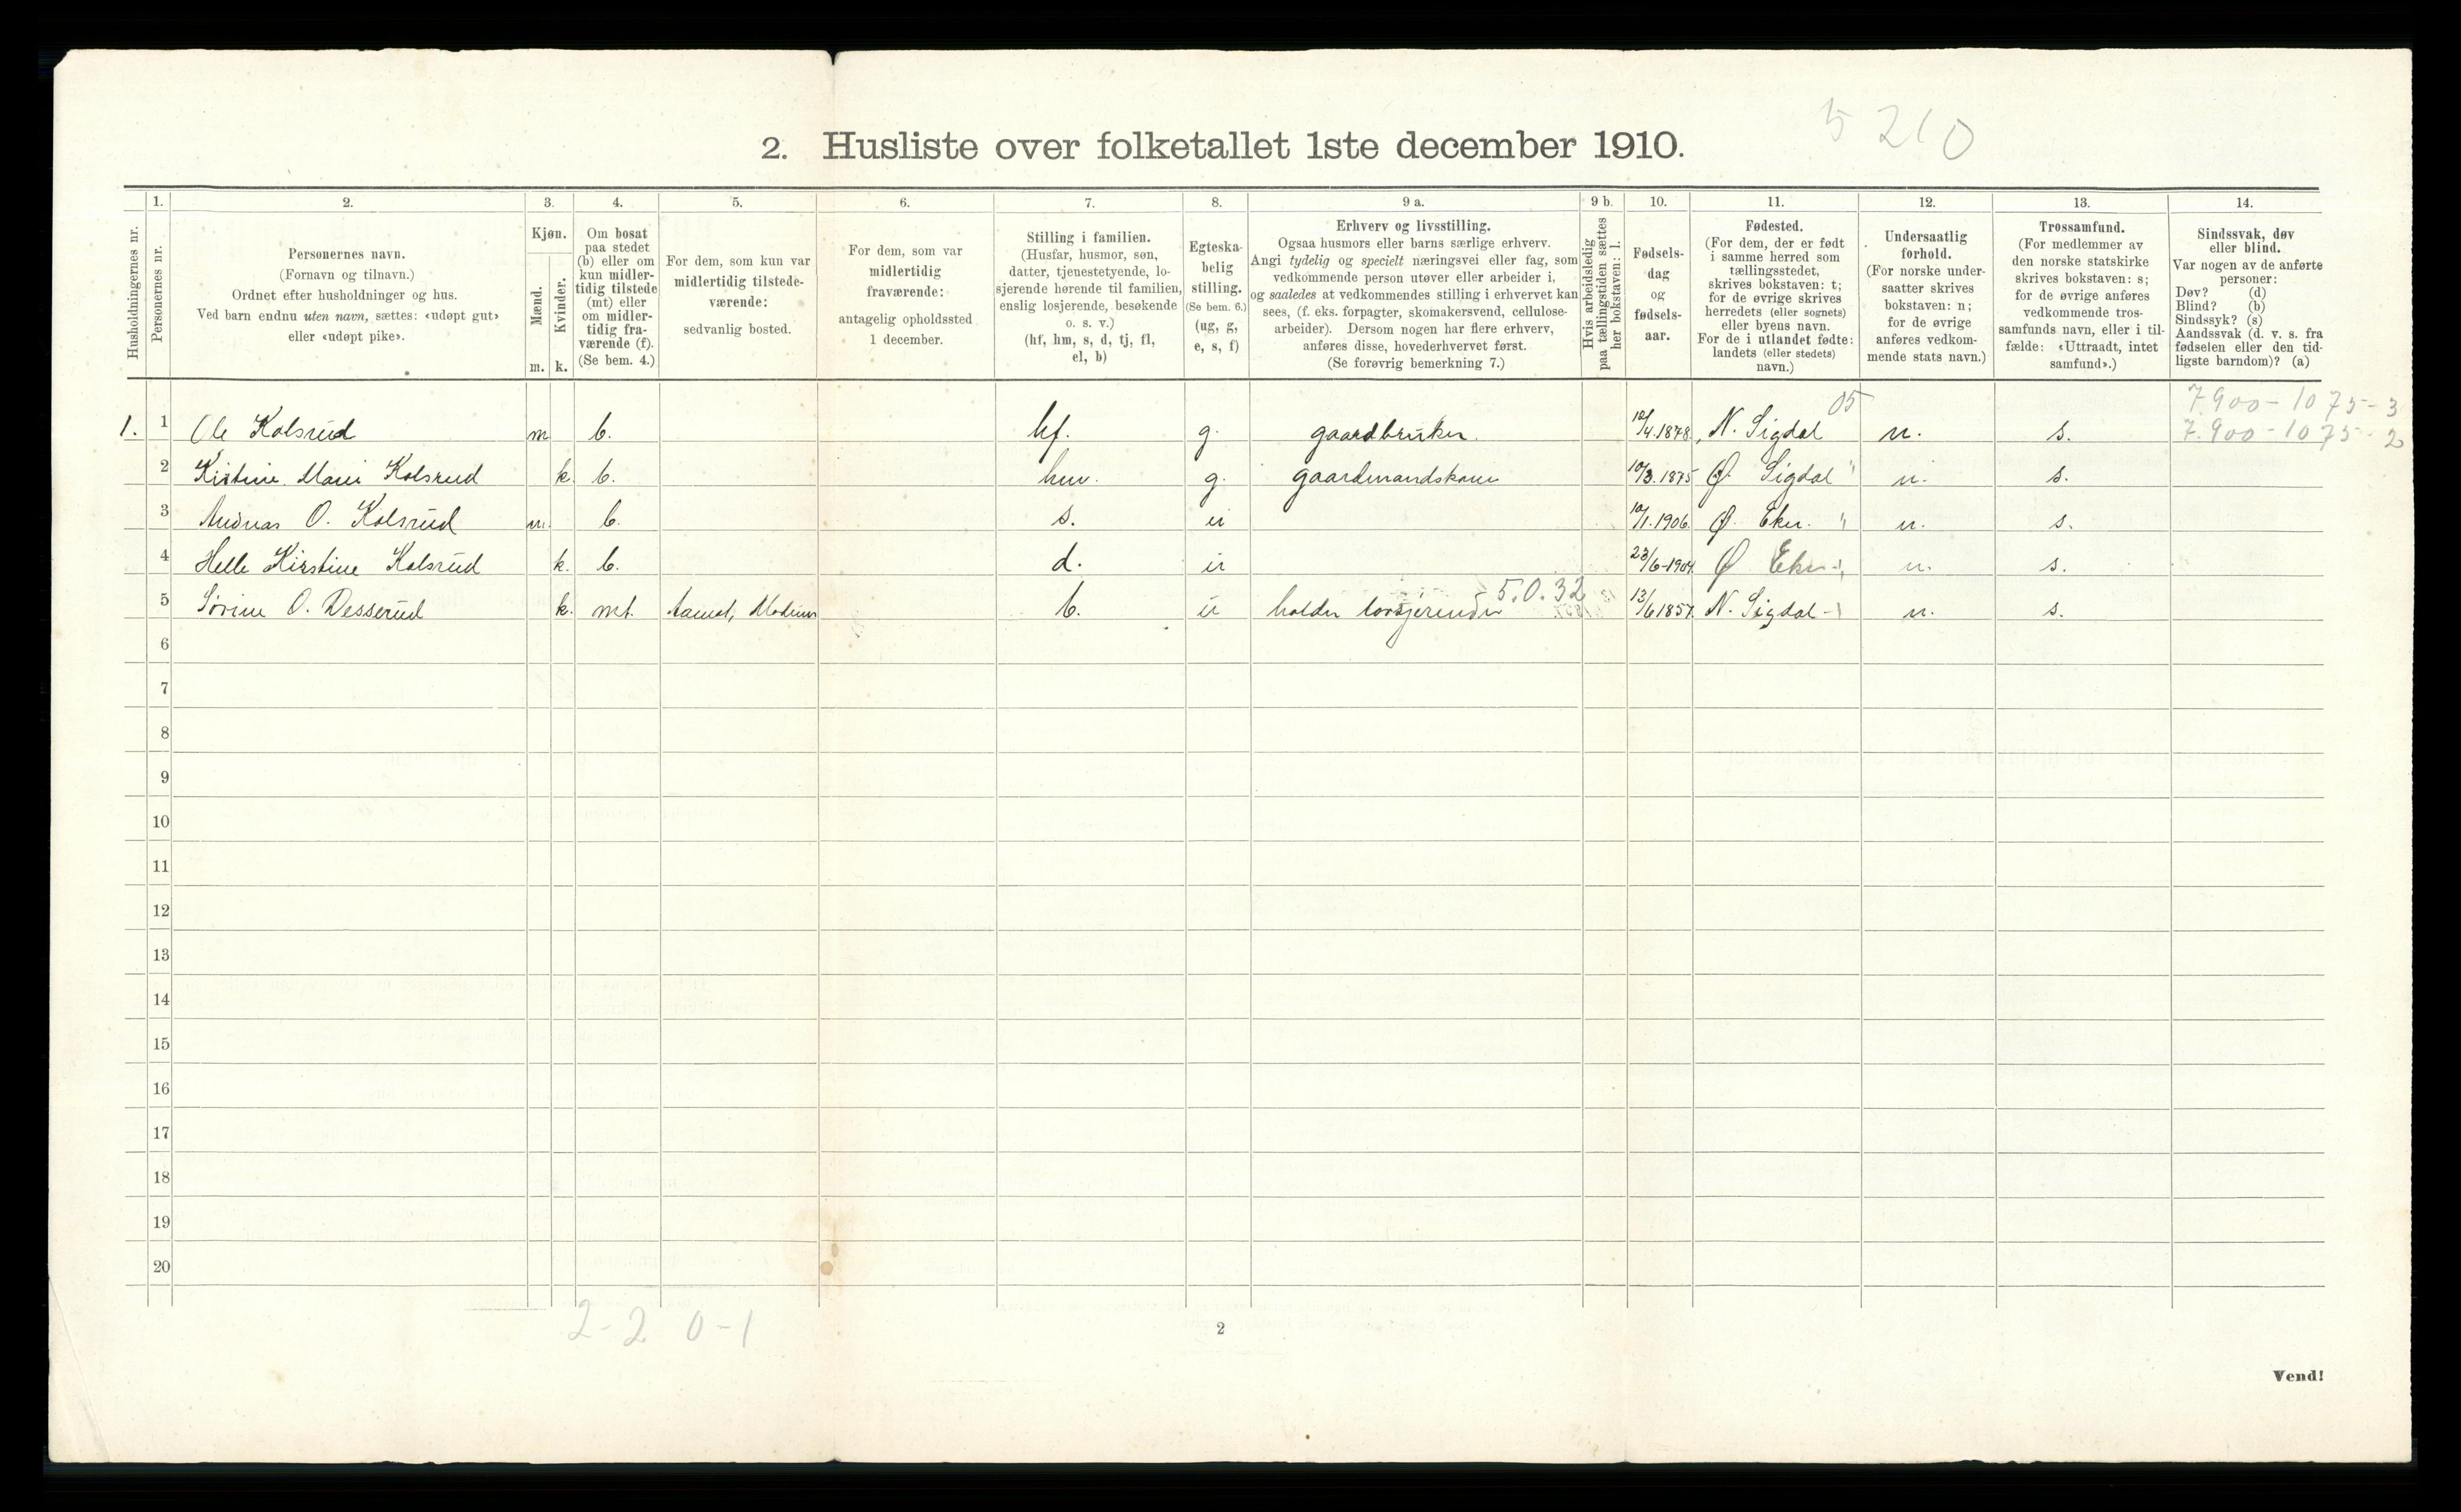 5 2 1 0
2. Husliste over folketallet 1ste december 1910.
Husholdningernes nr.
1.
Personernes nr.
2.
Personernes navn.
(Fornavn og tilnavn.)
Ordnet efter husholdninger og hus.
Ved barn endnu uten navn, sættes: «udøpt gut»
eller «udøpt pike».
3.
Kjøn.
Mænd.
m.
Kvinder.
k.
4.
Om bosat
paa stedet
(b) eller om
kun midler-
tidig tilstede
(mt) eller
om midler-
tidig fra-
værende (f).
(Se bem. 4.)
5.
For dem, som kun var
midlertidig tilstede-
værende:
sedvanlig bosted.
6.
For dem, som var
midlertidig
fraværende:
antagelig opholdssted
1 december.
7.
Stilling i familien.
(Husfar, husmor, søn,
datter, tjenestetyende, lo-
sjerende hørende til familien,
enslig losjerende, besøkende
o. s. v.)
(hf, hm, s, d, tj, fl,
el, b)
8.
Egteska-
belig
stilling.
(Se bem. 6.)
(ug, g,
e, s, f)
9 a.
Erhverv og livsstilling.
Ogsaa husmors eller barns særlige erhverv.
Angi tydelig og specielt næringsvei eller fag, som
vedkommende person utøver eller arbeider i,
og saaledes at vedkommendes stilling i erhvervet kan
sees, (f. eks. forpagter, skomakersvend, cellulose-
arbeider). Dersom nogen har flere erhverv,
anføres disse, hovederhvervet først.
(Se forøvrig bemerkning 7.)
9 b.
Hvis arbeidsledig
paa tællingstiden sættes
her bokstaven: l.
10.
Fødsels-
dag
og
fødsels-
aar.
11.
Fødested.
(For dem, der er født
i samme herred som
tællingsstedet,
skrives bokstaven: t;
for de øvrige skrives
herredets (eller sognets)
eller byens navn.
For de i utlandet fødte:
landets (eller stedets)
navn.)
12.
Undersaatlig
forhold.
(For norske under-
saatter skrives
bokstaven: n;
for de øvrige
anføres vedkom-
mende stats navn.)
13.
Trossamfund.
(For medlemmer av
den norske statskirke
skrives bokstaven: s;
for de øvrige anføres
vedkommende tros-
samfunds navn, eller i til-
fælde: «Uttraadt, intet
samfund».)
14.
Sindssvak, døv
eller blind.
Var nogen av de anførte
personer:
Døv? (d)
Blind? (b)
Sindssyk? (s)
Aandssvak (d. v. s. fra
fødselen eller den tid-
ligste barndom)? (a)
05 7.900 - 1075 - 3
1. 1 Ole Kolsrud m b. hf. g. gaardbruker. 12/4.1878. N. Sigdal n. s. 7.900 - 1075 - 2
2 Kirstine Marie Kolsrud k b. hm. g. gaardmandskone 10/3.1875 Ø. Sigdal " n. s.
3 Andreas O. Kolsrud m. b. s. u 10/1.1906. Ø. Eker. " n. s.
4 Helle Kirstine Kolsrud k. b. d. u 23/6-1904. Ø Eker " n. s.
5.0.32
5 Sørine O. Desserud k. mt. Aamot, Modum b. u holder losjerende 13/6 1857. N. Sigdal - " n. s.
6
7
8
9
10
11
12
13
14
15
16
17
18
19
20
2 - 2 0 - 1
2
Vend!